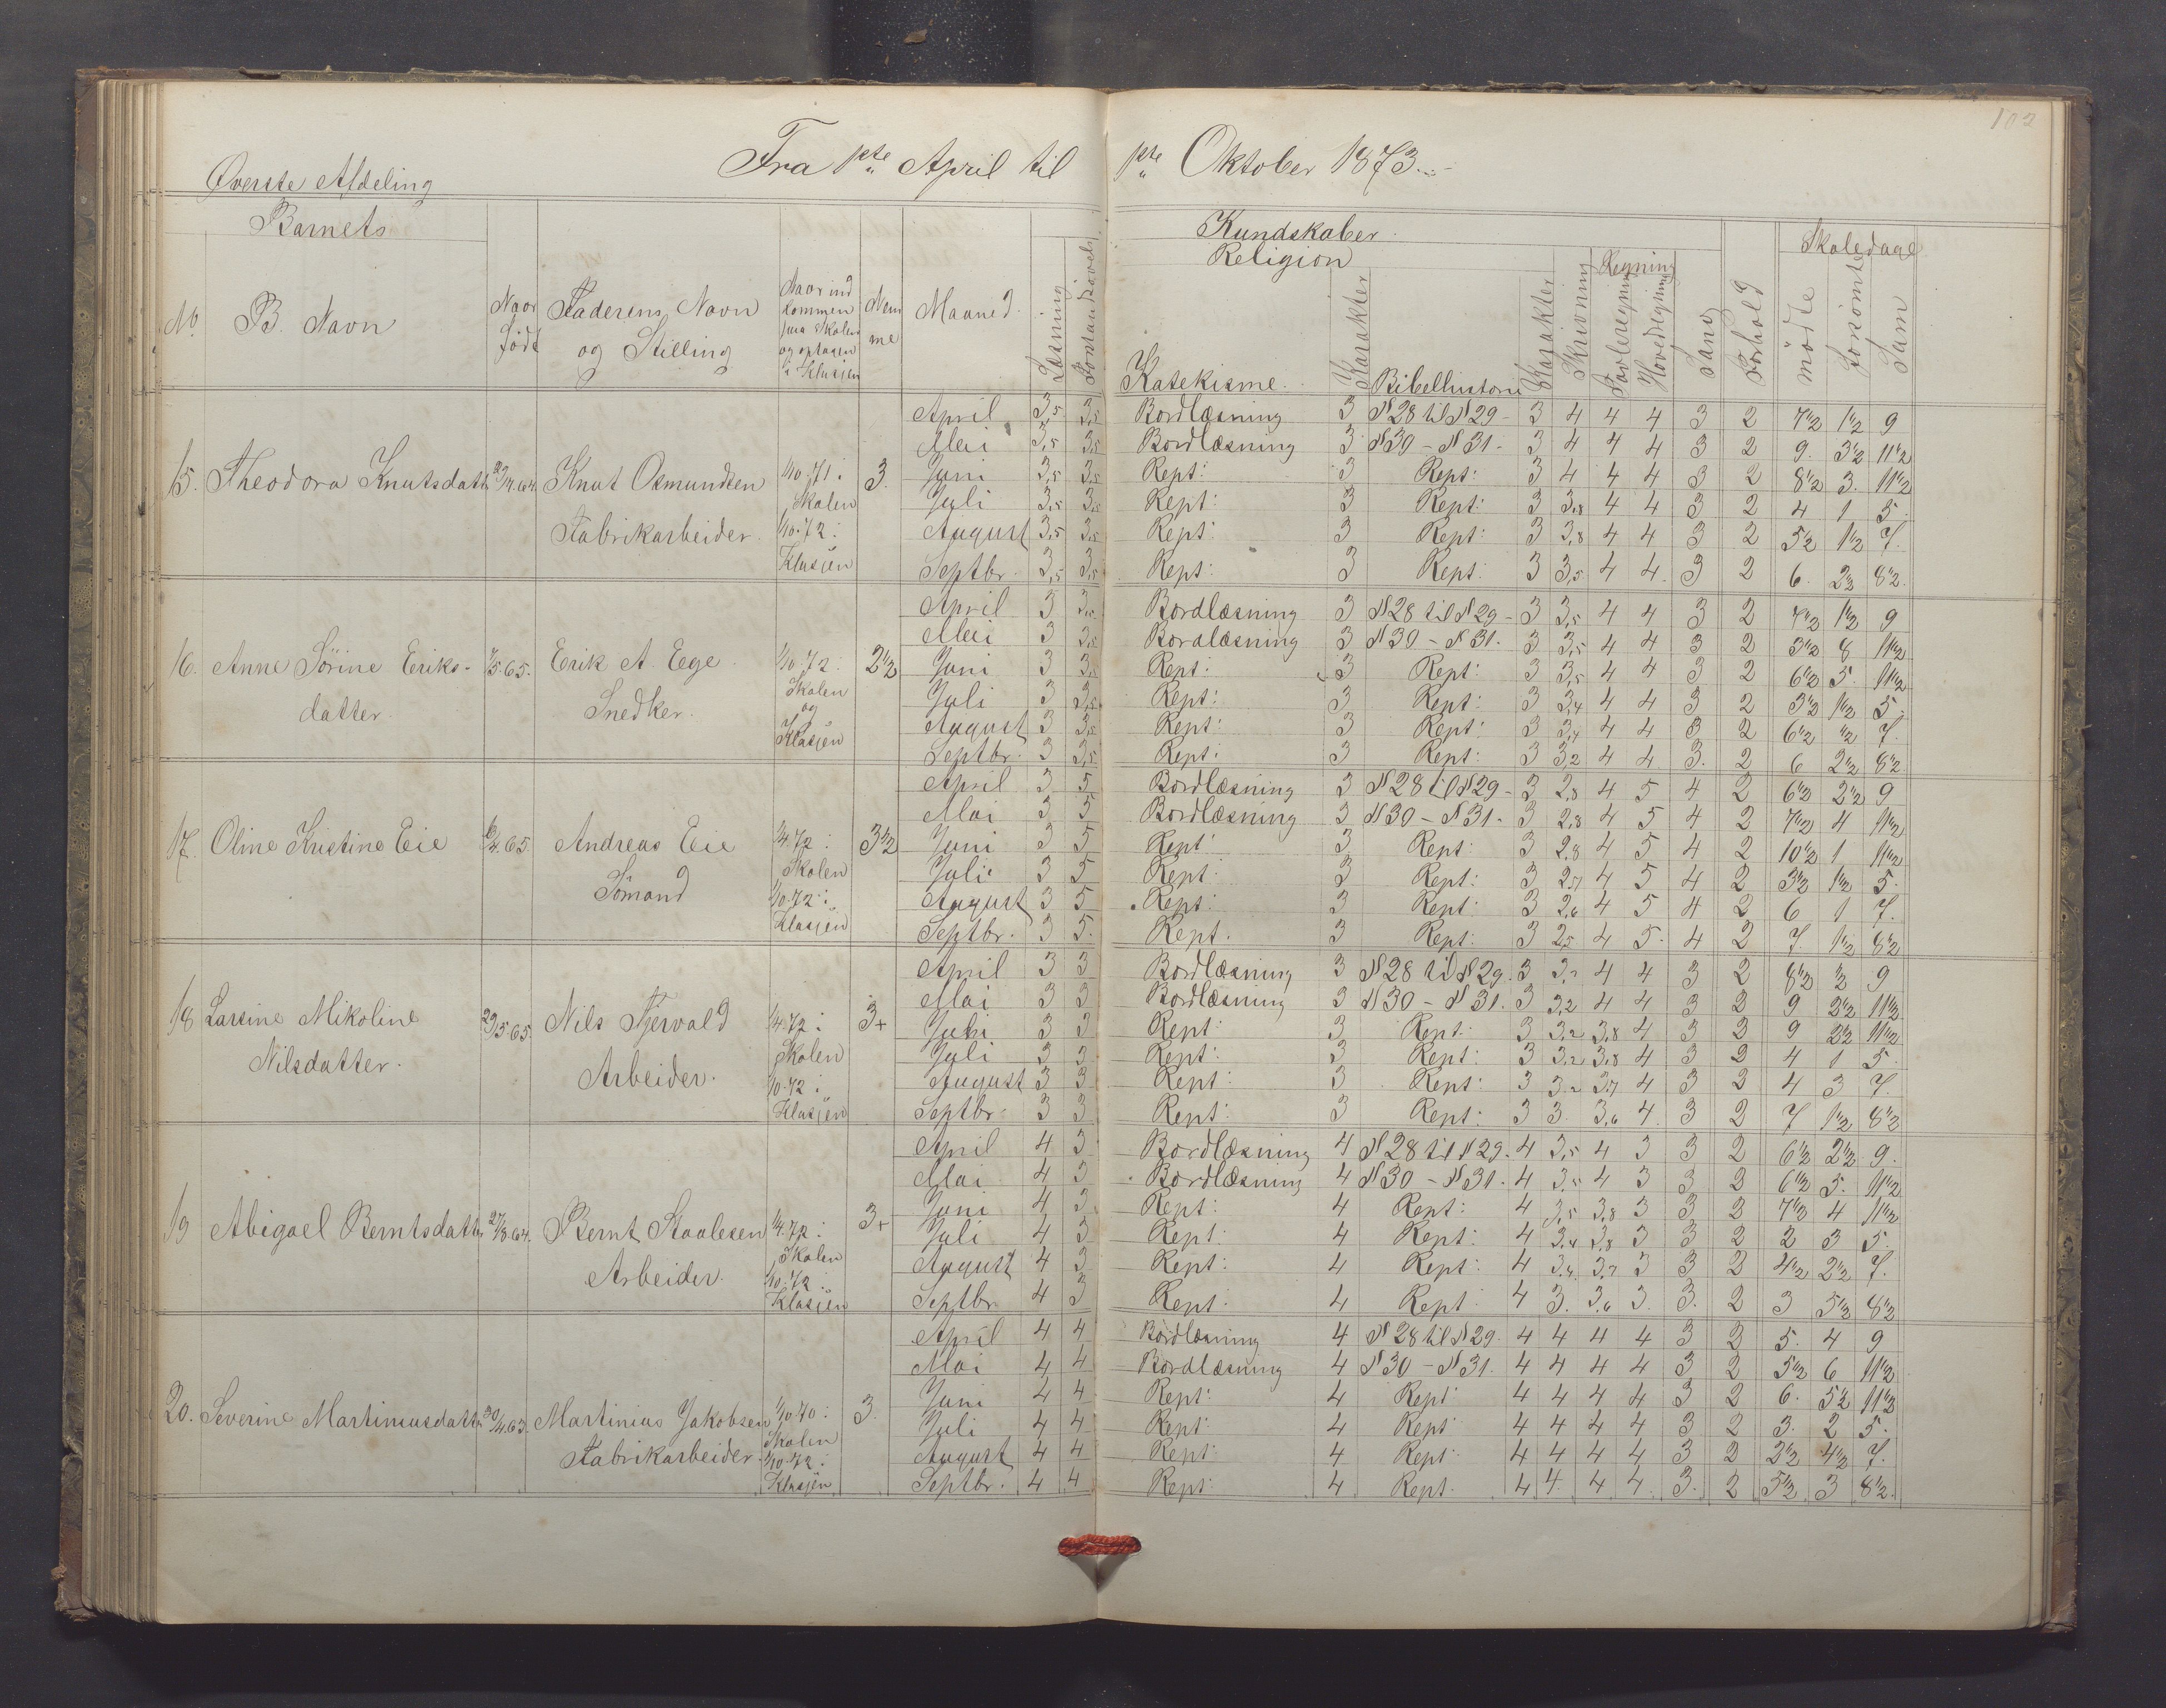 102
Øverste Afdeling
Fra 1ste April til 1ste Oktober 1873.
Barnets
No. B. Navn
Naar født
Faderens Navn og Stilling
Naar ind kommen paa Skolen og optagen i Klassen
Nem me
Maaned
Læsning
Forstandsøvels
Kundskaber
Religion
Katekisme
Karakter
Bibelhistorie
Karakter
Skrivning
Regning
Tavleregning
Hovedregning
Sang
Forhold
Skoledage
mödte
forsömte
Sum
15. Theodora Knutsdatt. 23/4.64. Knut Osmundsen Fabrikarbeider. 1/10.71 i Skolen 1/10.72 i Klassen 3.
April 3,5 3,5 Bordlæsning 3 N 28 til N 29 - 3 4 4 4 3 2 7½ 1½ 9
Mai 3,5 3,5 Bordlæsning 3 N 30 - N 31. 3 4 4 4 3 2 9. 3½ 11½
Juni 3,5 3,5 Rept: 3 Rept: 3 4 4 4 3 2 8½ 3. 11½
Juli 3,5 3,5 Rept: 3 Rept: 3 3,8 4 4 3 2 4 1 5.
August 3,5 3,5 Rept: 3 Rept: 3 3,8 4 4 3 2 5½ 1½ 7.
Septbr. 3,5 3,5 Rept: 3 Rept: 3 3,5 4 4. 3 2 6. 2½ 8½.
16. Anne Sörine Eriks-datter. 7/5.65. Erik A. Eege Snedker. 1/10.72 i Skolen og Klassen 2½
April 3 3,5 Bordlæsning 3 N 28 til N 29 - 3 3,5 4 4 3 2 7½ 1½ 9
Mai 3 3,5 Bordlæsning 3 N 30 - N 31. 3 3,5 4 4 3 2 3½ 8 11½
Juni 3 3,5 Rept: 3 Rept: 3 3,5 4 4 3 2 6½ 5. 11½
Juli 3 3,5 Rept: 3 Rept: 3 3,4 4 4 3 2 3½ 1½ 5.
August 3 3,5 Rept: 3 Rept: 3 3,4 4 4 3 2 6½ ½ 7.
Septbr. 3 3,5 Rept: 3 Rept: 3 3,2 4 4 3. 2 6 2½ 8½
17. Oline Kristine Eie Andreas Eie Sömand 1/4.72 i Skolen 1/10.72 i Klassen 3½
April 3 5 Bordlæsning 3 N 28 til N 29 - 3 2,8 4 5 4 2 6½ 2½ 9
Mai 3 5 Bordlæsning 3 N 30 - N 31. 3 2,8 4 5 4 2 7½ 4 11½
Juni 3 5 Rept: 3 Rept: 3 2,8 4 5 4 2 10½ 1 11½
Juli 3 5 Rept: 3 Rept: 3 2,7 4 5 4 2 3½ 1½ 5.
August 3 5 Rept: 3 Rept: 3 2,6 4 5 4 2 6 1 7.
Septbr. 3 5. Rept. 3 Rept: 3 2,5 4 5. 4 2 7. 1½ 8½
18 Larsine Mikoline Nilsdatter. 29/5.65. Nils Tjervald Arbeider. 1/4.72 i Skolen 1/10.72 i Klassen 3+
April 3 3 Bordlæsning 3 N 28 til N 29. 3 3,2 4 4 3 2 8½ ½ 9
Mai 3 3 Bordlæsning 3 N 30 - N 31. 3 3,2 4 4 3 2 9 2½ 11½
Juni 3 3 Rept: 3 Rept: 3 3,2 3,8 4 3 2 9 2½ 11½
Juli 3 3 Rept: 3 Rept: 3 3,2 3,8 4 3 2 4 1 5.
August 3 3 Rept: 3 Rept: 3 3,2 3,7 4 3 2 4 3 7.
Septbr. 3 3 Rept: 3 Rept: 3 3. 3,6 4. 3 2 7 1½ 8½
19 Abigael Berntsdatt. 27/8.64. Bernt Staalesen Arbeider. 1/4.72 i Skolen 1/10.72 i Klassen 3+
April 4 3 Bordlæsning 4 N 28 til N 29. 4 3,5 4 3 3 2 6½ 2½ 9.
Mai 4 3 Bordlæsning 4 N 30 - N 31. 4 3,5 4 3 3 2 6½ 5. 11½
Juni 4 3. Rept: 4 Rept: 4 3,5 3,8 3 3 2 7½ 4 11½
Juli 4 3 Rept: 4 Rept: 4 3,4 3,8 3 3 2 2 3 5.
August 4 3 Rept: 4 Rept: 4 3,4 3,7 3 3 2 4½ 2½ 7.
Septbr. 4 3 Rept: 4 Rept: 4 3. 3,6 3. 3. 2 3 5½ 8½
20. Severine Martiniusdatt. 30/4.63. Martinius Jakobsen Fabrikarbeider. 1/10.70 i Skolen 1/10.72 i Klassen 3.
April 4 4 Bordlæsning 4 N 28 til N 29. 4 4 4 4 3 2 5. 4 9
Mai 4 4 Bordlæsning 4 N 30 - N 31. 4 4 4 4 3 2 5½ 6 11½
Juni 4 4 Rept: 4 Rept: 4 4 4 4 3 2 6. 5½ 11½
Juli 4 4 Rept: 4 Rept 4 4 4 4 3 2 3. 2 5.
August 4 4 Rept: 4 Rept 4 4 4 4 3 2 2½ 4½ 7.
Septbr. 4 4 Rept: 4 Rept. 4 4. 4 4. 3. 2 5½ 3 8½.